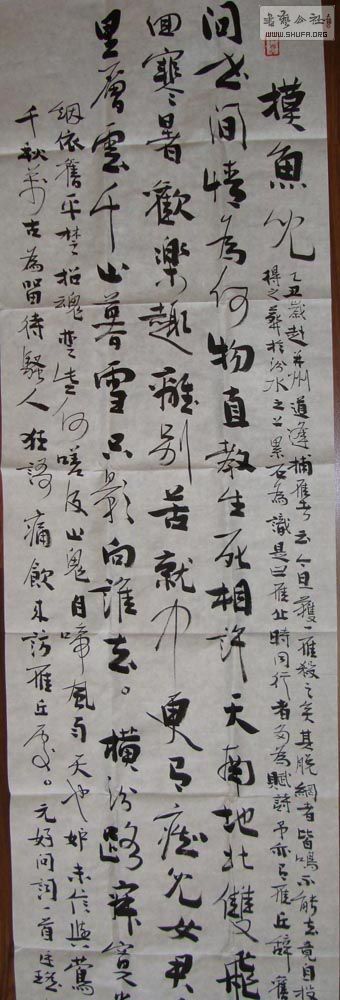 书艺公社
WWW.SHUFA.ORG
摸魚兒
乙丑歲赴并州道逢捕雁者云今日獲一雁殺之矣其脫網者皆鳴不能去竟自投
得之葬於汾水之上累石為識是曰雁丘時同行者多為賦詩予亦有雁丘辭舊
问世间情為何物直教生死相許天南地北雙飛
回寒暑歡樂趣離別苦就中更有痴兒女君
里層雲千山暮雪只影向誰去。橫汾路寂寞當
烟依舊平楚招魂楚些何嗟及山鬼自啼風雨天也妒未信與鶯
千秋萬古為留待騷人狂謌痛飲來訪雁丘處。元好问詞一首